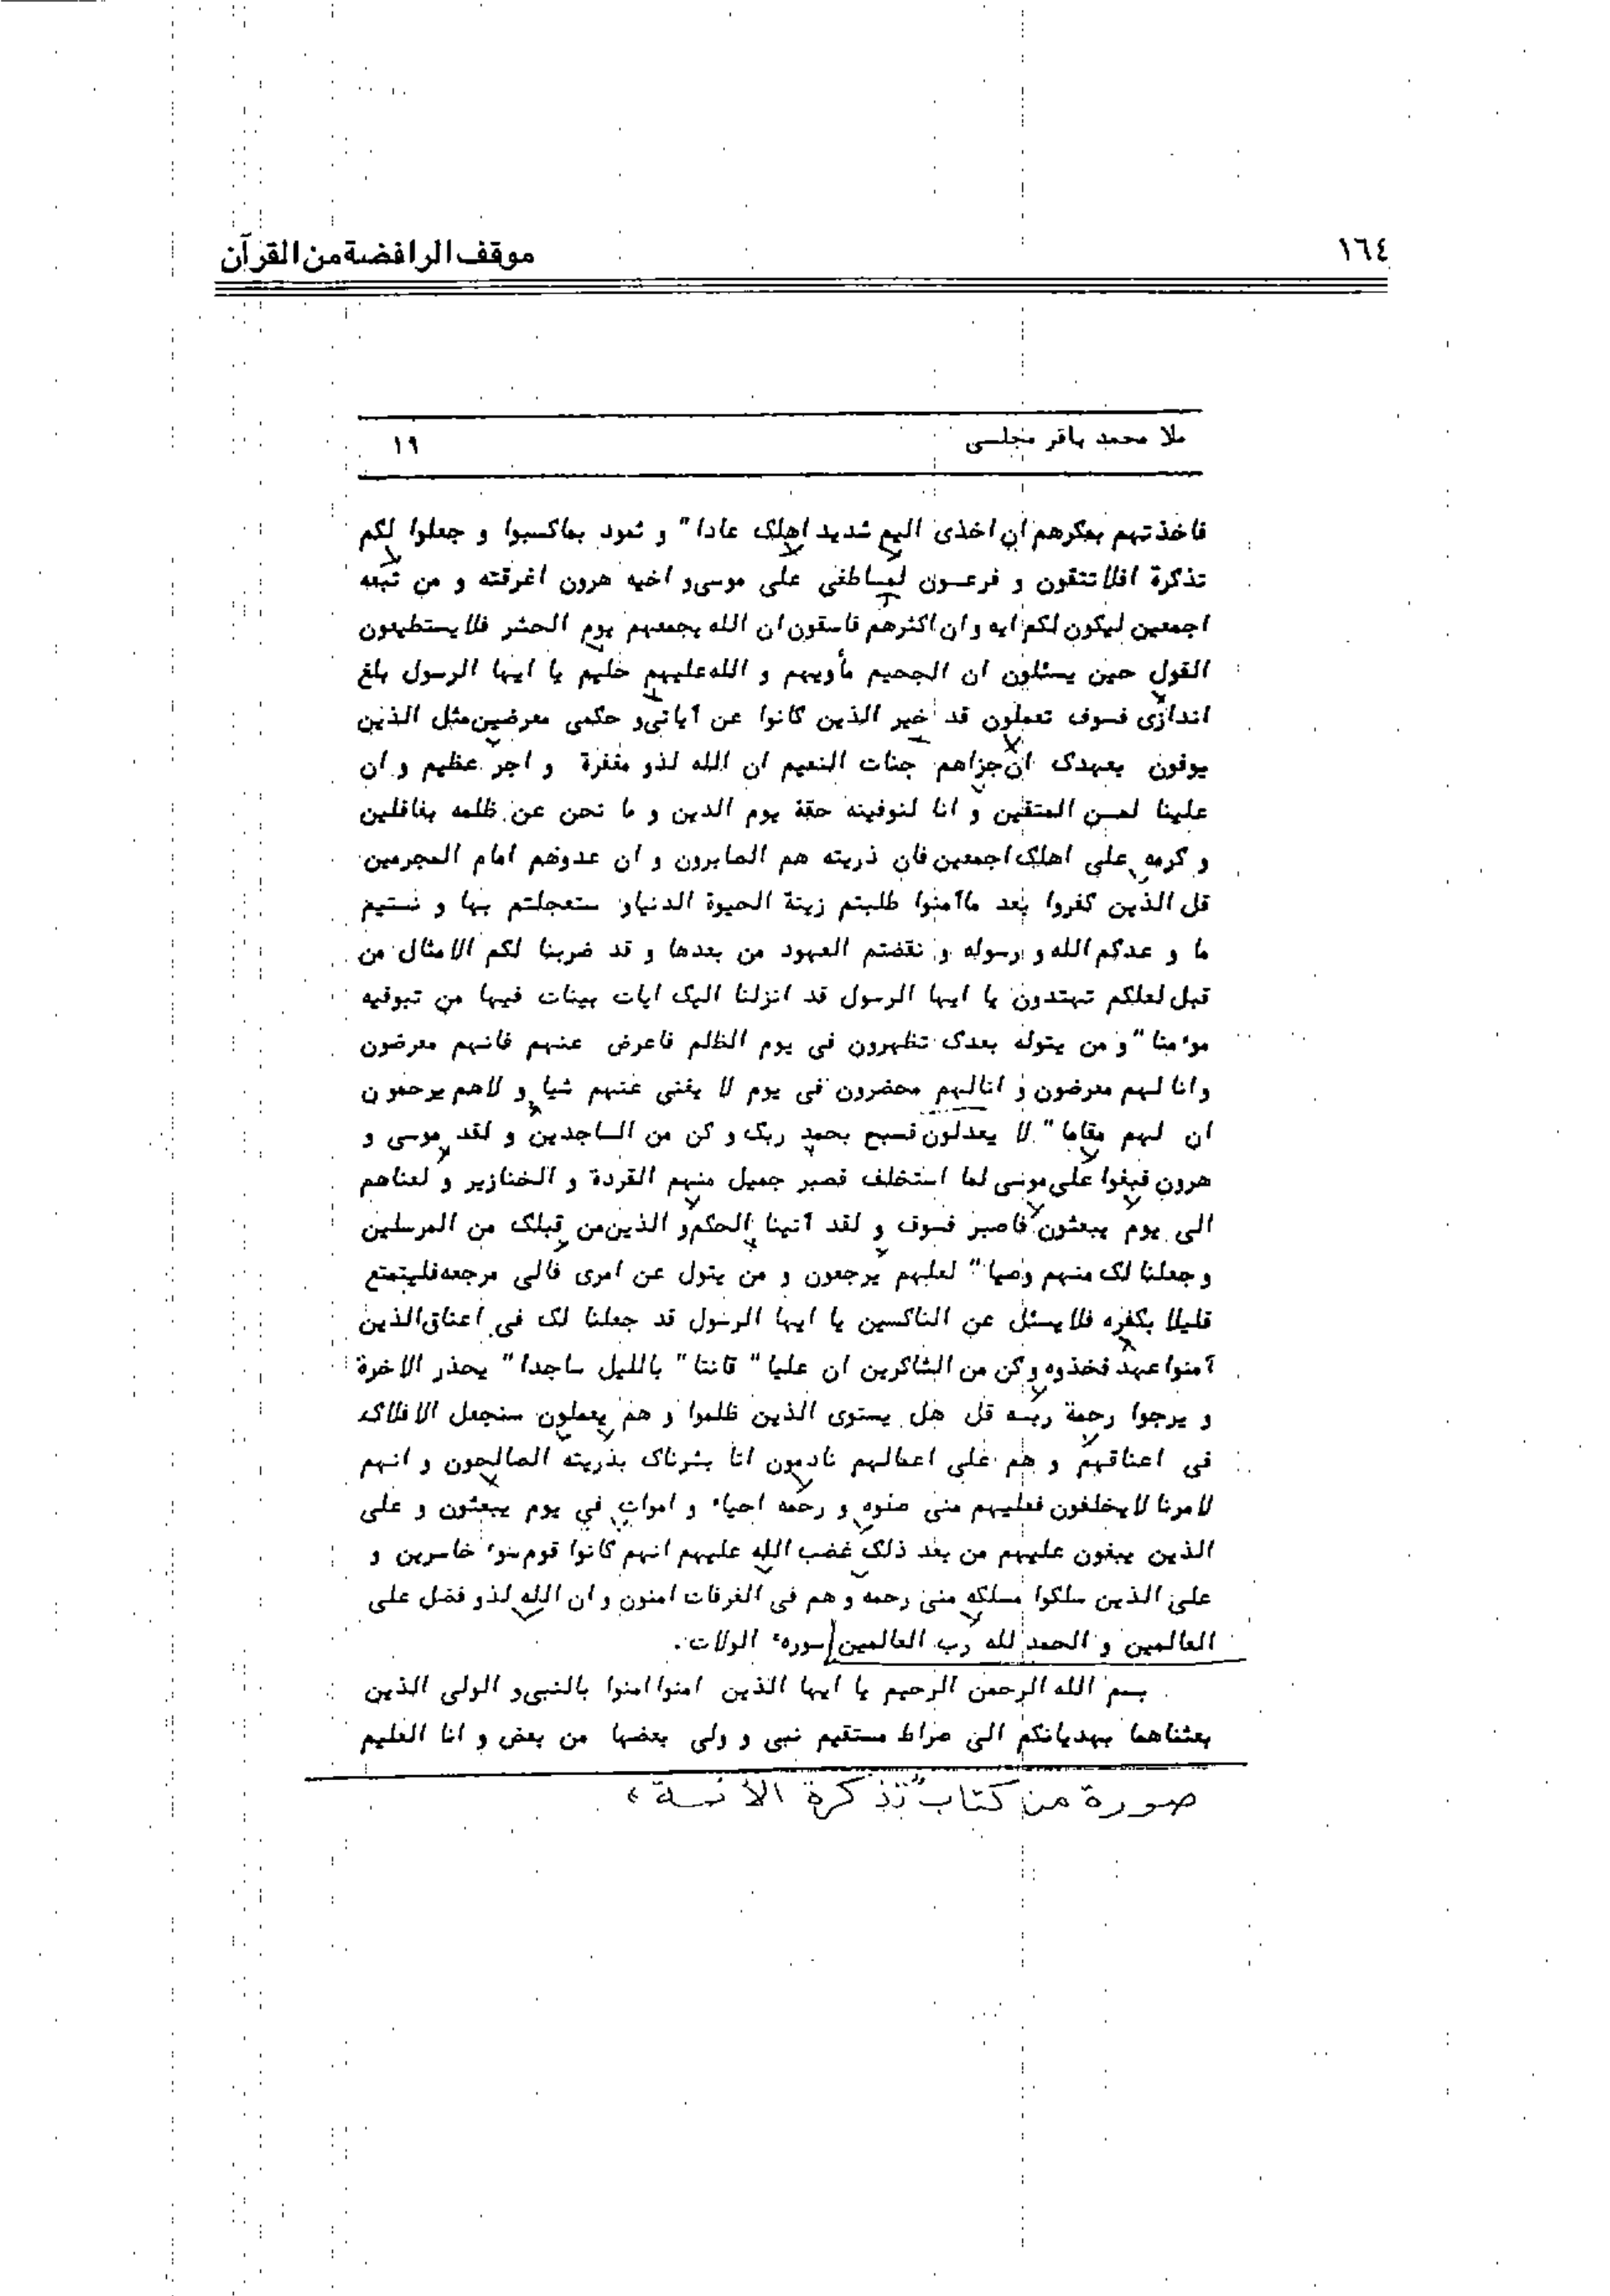 ١٦٤
موقف الرافضة من القرآن
ملا محمد باقر مجلسی
١٩
فاخذتهم بمکرهم ان اخذی الیم شدید اهلک عادا" و ثمود بماکسبوا و جعلوا لکم
تذکرة افلا تتقون و فرعون لمساطغی علی موسی و اخیه هرون اغرقته و من تبعه
اجمعین لیکون لکم ایه و ان اکثرهم فاسقون ان الله یجمعهم یوم الحشر فلا یستطیعون
القول حین یسئلون ان الجحیم مأویهم و الله علیهم حلیم یا ایها الرسول بلغ
انذاری فسوف تعملون قد خیر الذین کانوا عن آیاتی و حکمی معرضین مثل الذین
یوفون بعهدک ان جزاهم جنات النعیم ان الله لذو مغفرة و اجر عظیم و ان
علینا لمن المتقین و انا لنوفینه حقة یوم الدین و ما نحن عن ظلمه بغافلین
و کرمه علی اهلک اجمعین فان ذریته هم الصابرون و ان عدوهم امام المجرمین
قل الذین کفروا بعد ماآمنوا طلبتم زینة الحیوة الدنیاو ستعجلتم بها و نستیم
ما و عدکم الله و رسوله و نقضتم العهود من بعدها و قد ضربنا لکم الامثال من
قبل لعلکم تهتدون یا ایها الرسول قد انزلنا الیک ایات بینات فیها من تبوقیه
موٴمنا" و من یتوله بعدک تظهرون فی یوم الظلم فاعرض عنهم فانهم معرضون
وانا لهم معرضون و انالهم محضرون فی یوم لا یغنی عنهم شیا و لاهم یرحمون
ان لهم مقاما" لا یعدلون فسبح بحمد ربک و کن من الساجدین و لقد موسی و
هرون فبغوا علی موسی لما استخلف فصبر جمیل منهم القردة و الخنازیر و لعناهم
الی یوم یبعثون فاصبر فسوف و لقد آتینا الحکم و الذین من قبلک من المرسلین
و جعلنا لک منهم وصیا" لعلهم یرجعون و من یتول عن امری فالی مرجعه فلیتمتع
قلیلا بکفره فلا یسئل عن الناکسین یا ایها الرسول قد جعلنا لک فی اعناق الذین
آمنوا عهد فخذوه و کن من الشاکرین ان علیا" قانتا" باللیل ساجدا" یحذر الاخرة
و یرجوا رحمة ربه قل هل یستوی الذین ظلموا و هم یعملون سنجعل الافلاک
فی اعناقهم و هم علی اعمالهم نادمون انا بشرناک بذریته الصالحون و انهم
لامرنا لایخلفون فعلیهم منی صلوه و رحمه احیاء و اموات فی یوم یبعثون و علی
الذین یبغون علیهم من بعد ذلک غضب الله علیهم انهم کانوا قوم سوء خاسرین و
علی الذین سلکوا مسلکه منی رحمه و هم فی الغرفات امنون و ان الله لذو فضل علی
العالمین و الحمد لله رب العالمین/سوره الولات.
بسم الله الرحمن الرحیم یا ایها الذین امنوا امنوا بالنبی و الولی الذین
بعثناهما یهدیانکم الی صراط مستقیم نبی و ولی بعضها من بعض و انا العلیم
صورة من كتاب "تذكرة الأئمة"